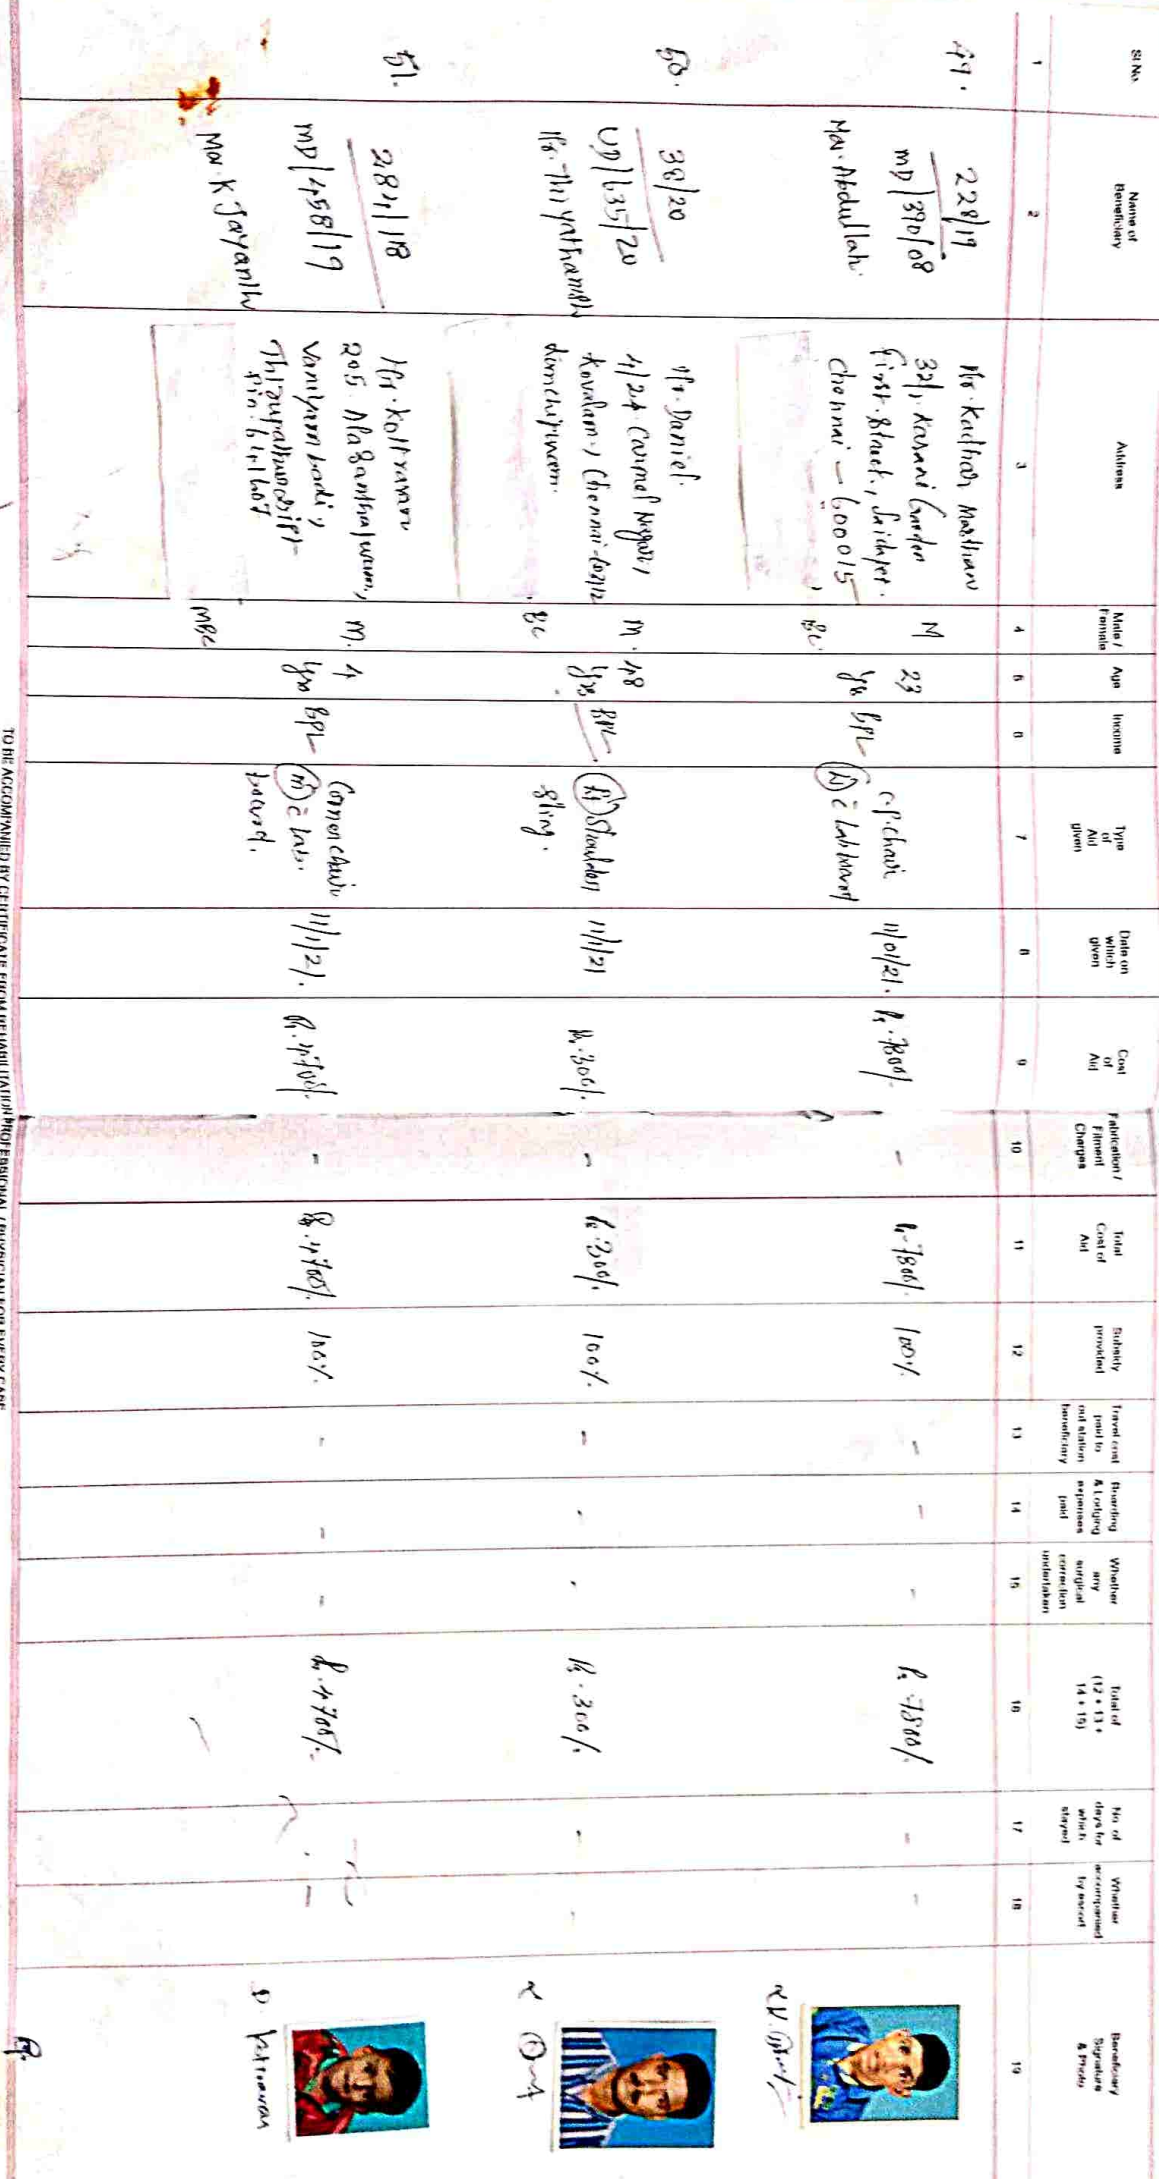 Sl No.
Name of Beneficiary
Address
Male / Female
Age
Income
Type of Aid given
Date on which given
Cost of Aid
Fabrication / Fitment Charges
Total Cost of Aid
Subsidy provided
Travel cost paid to out station beneficiary
Boarding & Lodging expenses paid
Whether any surgical correction undertaken
Total of (12 + 13 + 14 + 15)
No. of days for which stayed
Whether accompanied by escort
Beneficiary Signature & Photo
1 2 3 4 5 6 7 8 9 10 11 12 13 14 15 16 17 18 19
49.
228/19
MD/390/08
Mas. Abdullah
Mr. Kadhar
32/, Karani Garden
First Street, Saidapet.
Chennai - 600015
M
BC
23
yrs
BPL
C.P. Chair
11/01/21.
Rs. 7800/-
-
Rs. 7800/-
100%
-
-
-
Rs. 7800/-
-
-
50.
38/20
UD/635/20
Mr. Daniel.
4/24 Carmel Nagar,
Kovalam, Chennai
M.
BC
48
yrs
BPL
Shoulder
sling.
11/1/21
Rs. 300/-
-
Rs. 300/-
100%
-
-
-
Rs. 300/-
-
-
51.
284/18
MD/458/19
Mas. K Jayanth
205.
Vaniyambadi,
M.
MBC
4
yrs
BPL
Corner chair
(m) c̄
board.
11/1/21.
Rs. 4700/-
-
Rs. 4700/-
100%
-
-
-
Rs. 4700/-
-
-
TO BE ACCOMPANIED BY CERTIFICATE FROM REHABILITATION PROFESSIONAL / PHYSICIAN FOR EVERY CASE